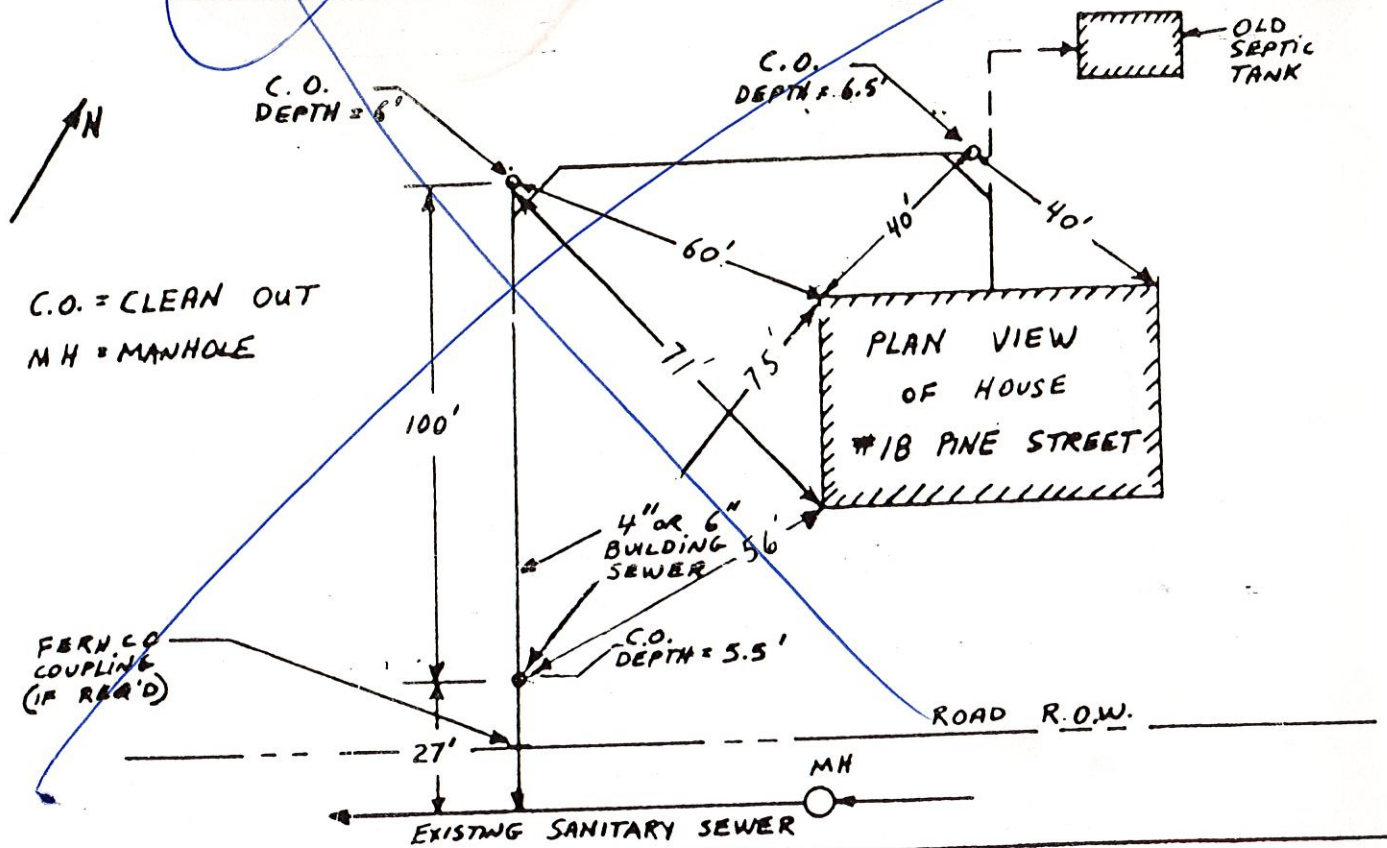 OLD
SEPTIC
TANK
C.O.
DEPTH = 6.5'
C.O.
DEPTH = 6'
N
40'
40'
60'
C.O. = CLEAN OUT
MH = MANHOLE
71'
75'
PLAN VIEW
OF HOUSE
#18 PINE STREET
100'
4" OR 6"
BUILDING
SEWER
56'
FERNCO
COUPLING
(IF REQ'D)
C.O.
DEPTH = 5.5'
ROAD R.O.W.
27'
MH
EXISTING SANITARY SEWER